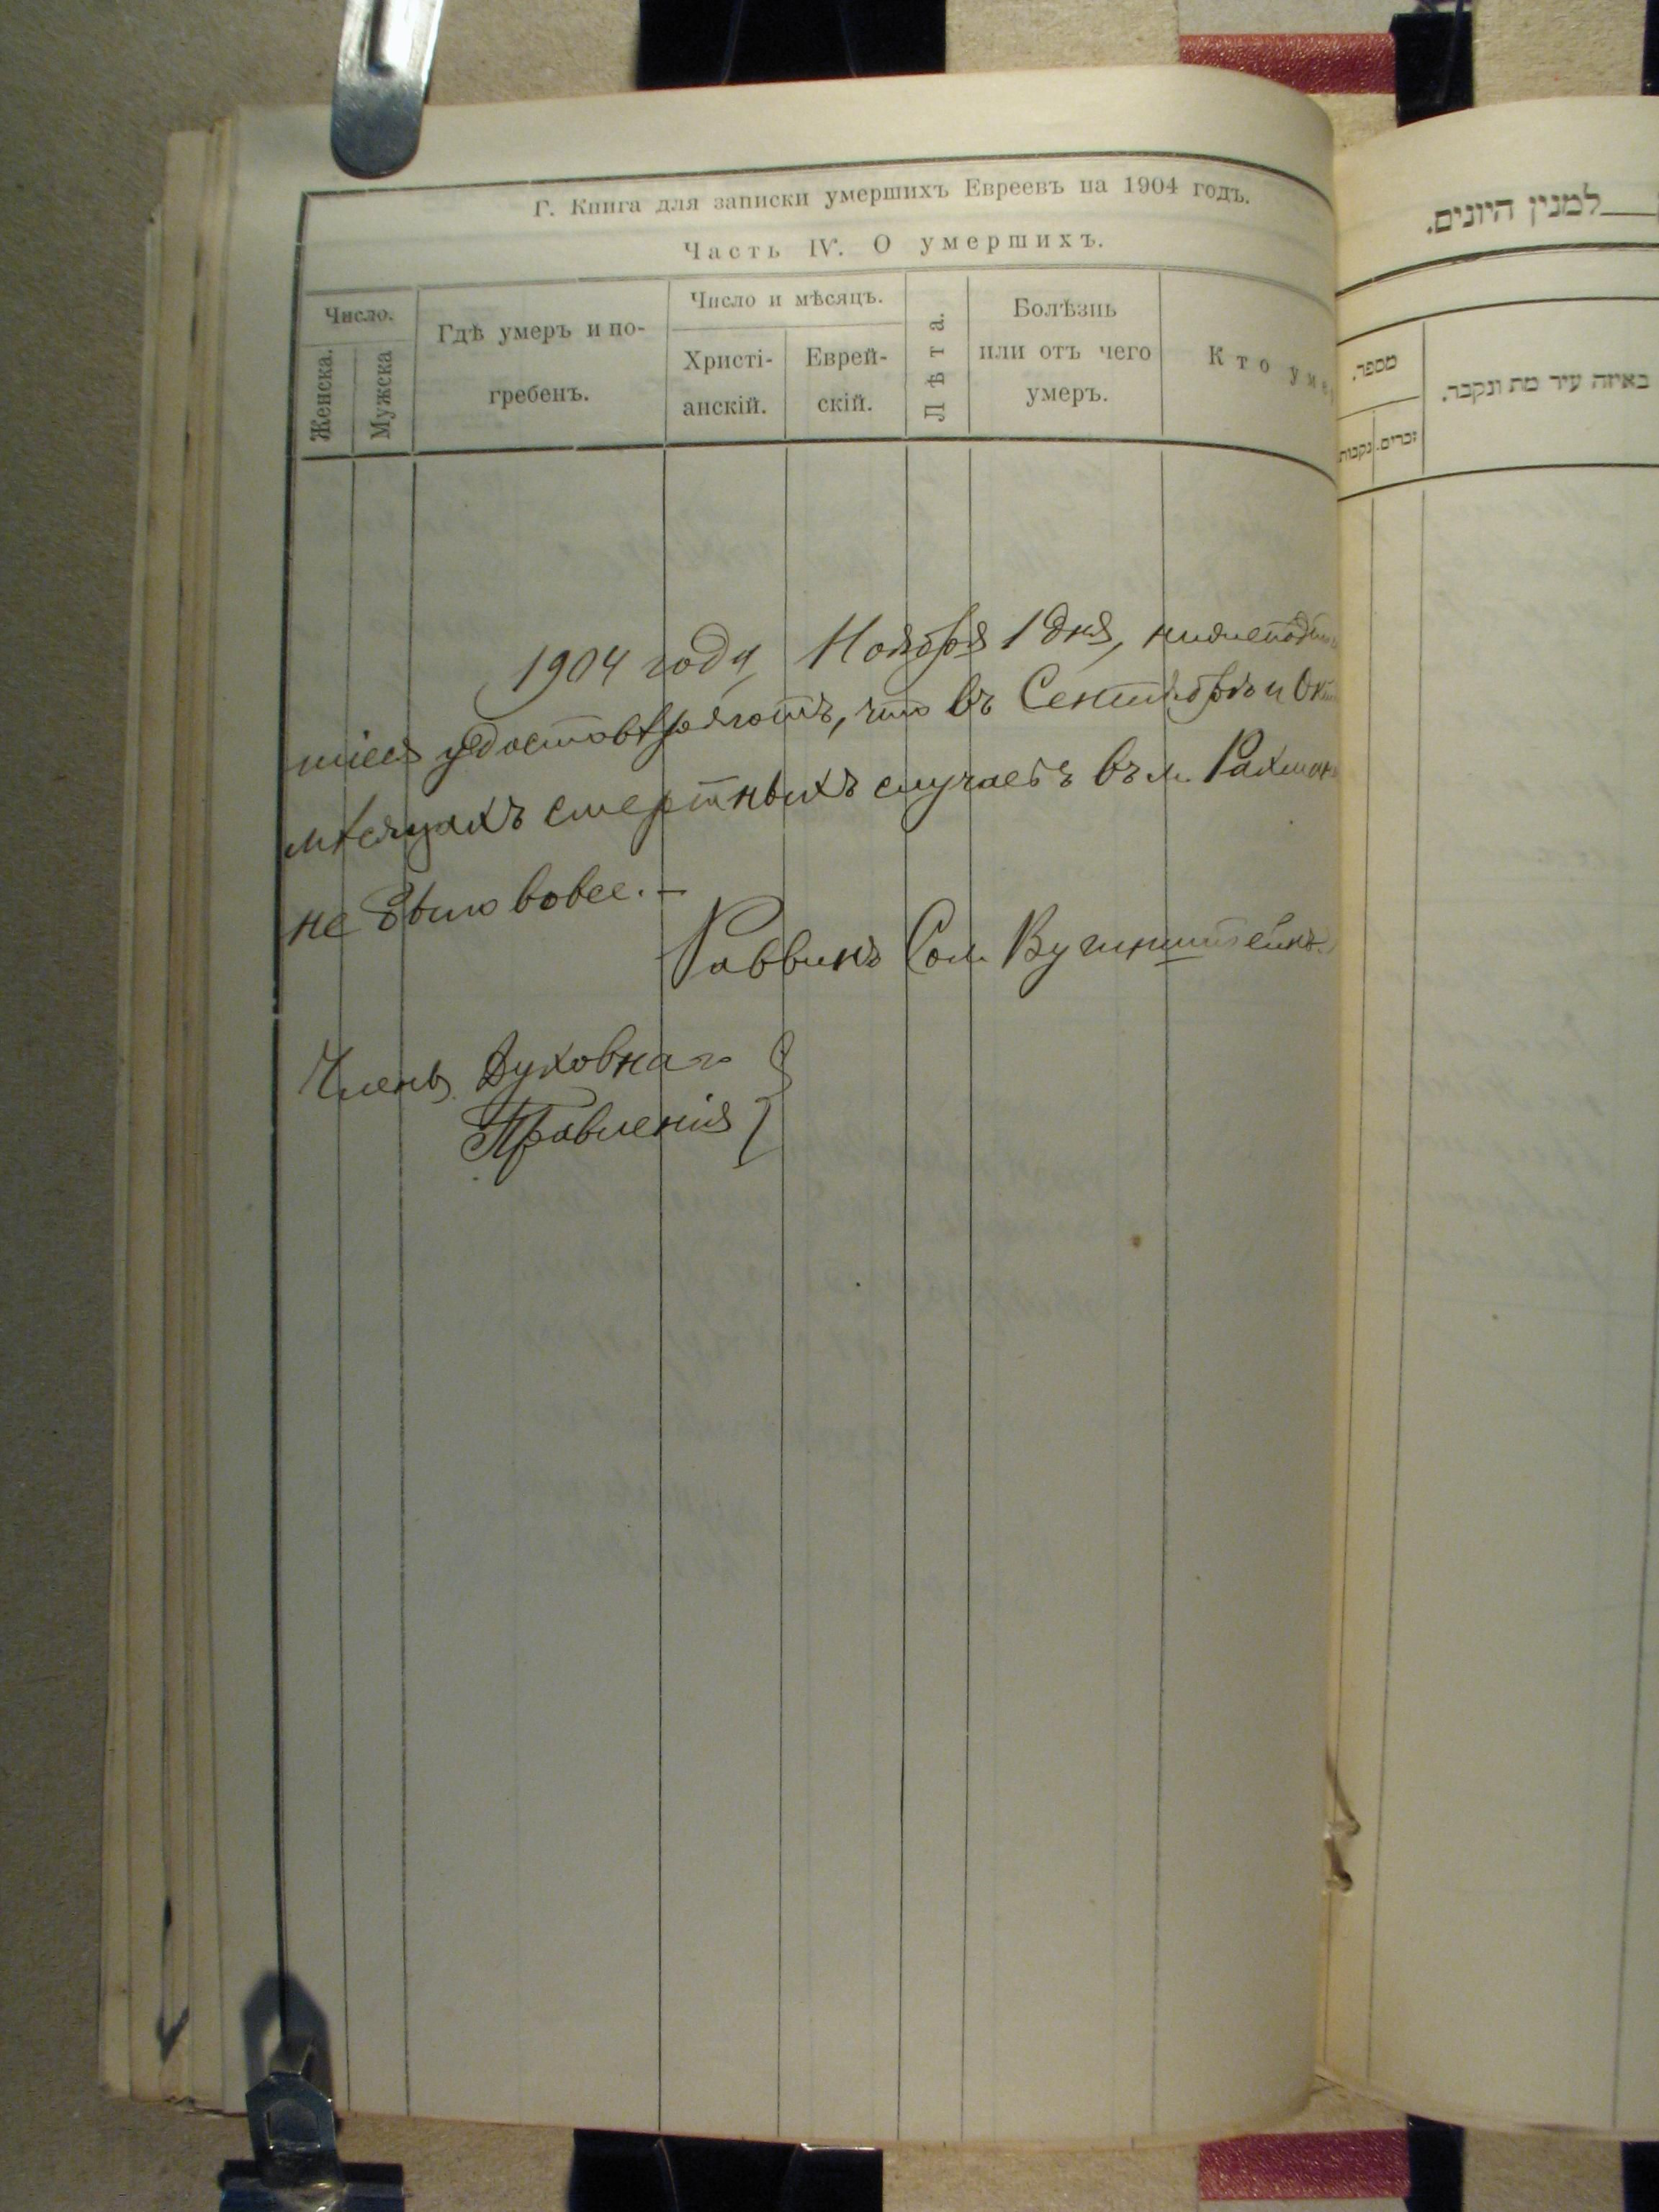 Г. Книга для записки умершихъ Евреевъ на 1904 годъ.
Часть IV. О умершихъ.
Число.
Женска.
Мужска
Гдѣ умеръ и по-
гребенъ.
Число и мѣсяцъ.
Христі-
анскій.
Еврей-
скій.
Лѣта.
Болѣзнь
или отъ чего
умеръ.
Кто уме
1904 года, Ноября 1 дня, нижепод
шіеся удостовѣряютъ, что въ Сентябрѣ и Ок
мѣсяцахъ смертныхъ случаевъ въ м. Рахман
не было вовсе. —
Раввинъ Сол.
Члены Духовнаго
Правленія
למנין היונים.
מספר.
זכרים.
נקבות
באיזה עיר מת ונקבר.